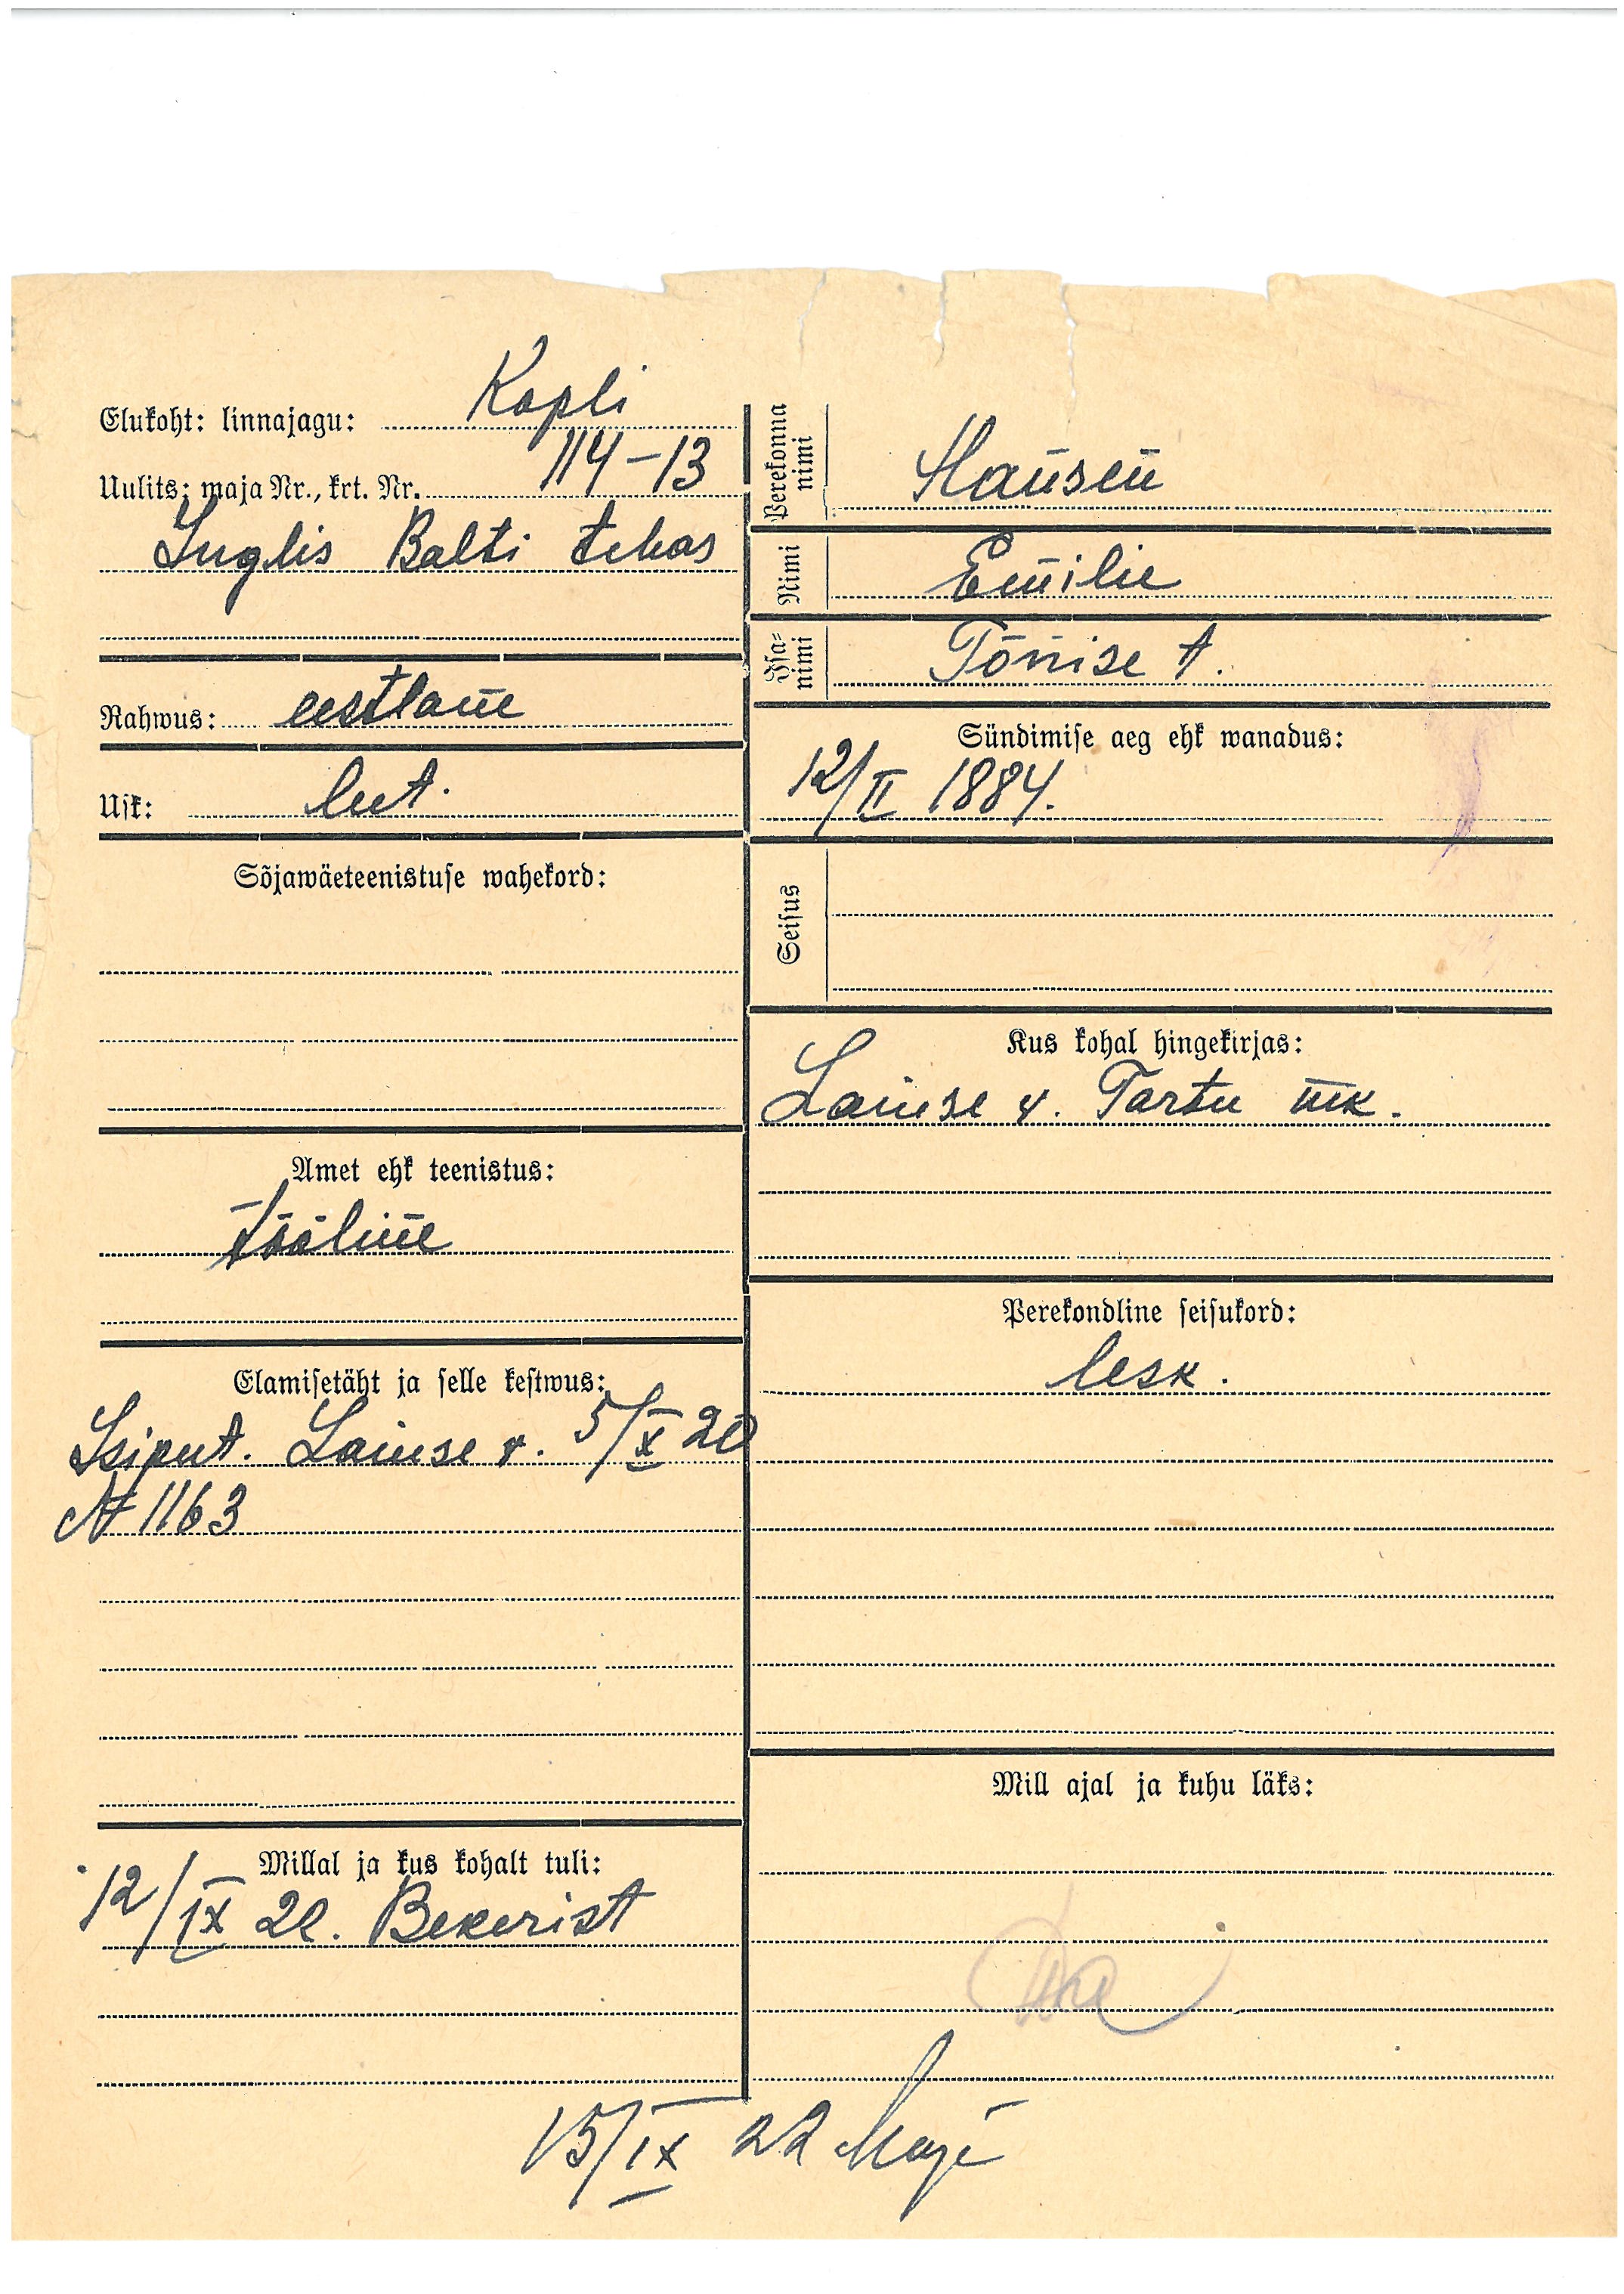 Elukoht: linnajagu: Kopli
Uulits; maja Nr., krt. Nr. 114-13
Inglis Balti tehas
Rahwus: eestlane
Usk: lut.
Sõjawäeteenistuse wahekord:
Amet ehk teenistus:
tööline
Elamisetäht ja selle kestwus:
Isiput. Laiuse v. 5/X 20
№ 1163
Millal ja kus kohalt tuli:
12/IX 22. Bekerist
Perekonna nimi Hansen
Nimi Emilie
Isa-nimi Tõnise t.
Sündimise aeg ehk wanadus:
12/II 1884.
Seisus
Kus kohal hingekirjas:
Laiuse v. Tartu mk.
Perekondline seisukord:
lesk.
Mill ajal ja kuhu läks:
15/IX 22